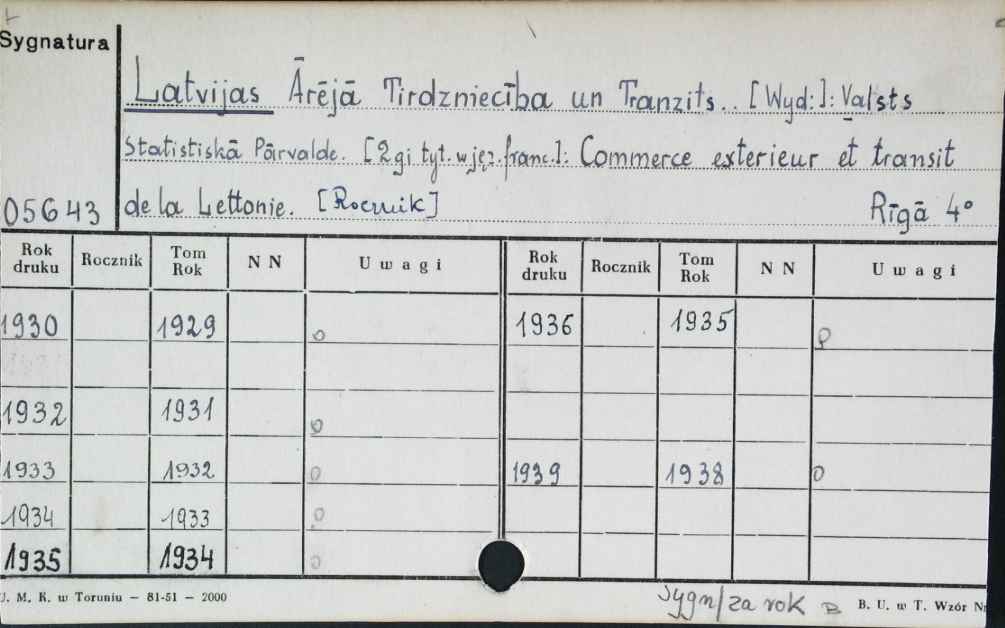 Sygnatura
Latvijas Ārējā Tirdzniecība un Tranzits.. [Wyd:]: Valsts
Statistiskā Pārvalde. [2gi tyt. w jęz. franc.]: Commerce exterieur et transit
05643 de la Lettonie. [Rocznik] Rīgā 4°
Rok druku Rocznik Tom Rok N N Uwagi Rok druku Rocznik Tom Rok N N Uwagi
1930 1929 o 1936 1935 o
1932 1931 o
1933 1932 o 1939 1938 o
1934 1933 o
1935 1934 o
J. M. K. w Toruniu — 81-51 — 2000 Sygn/za rok B. U. w T. Wzór Nr